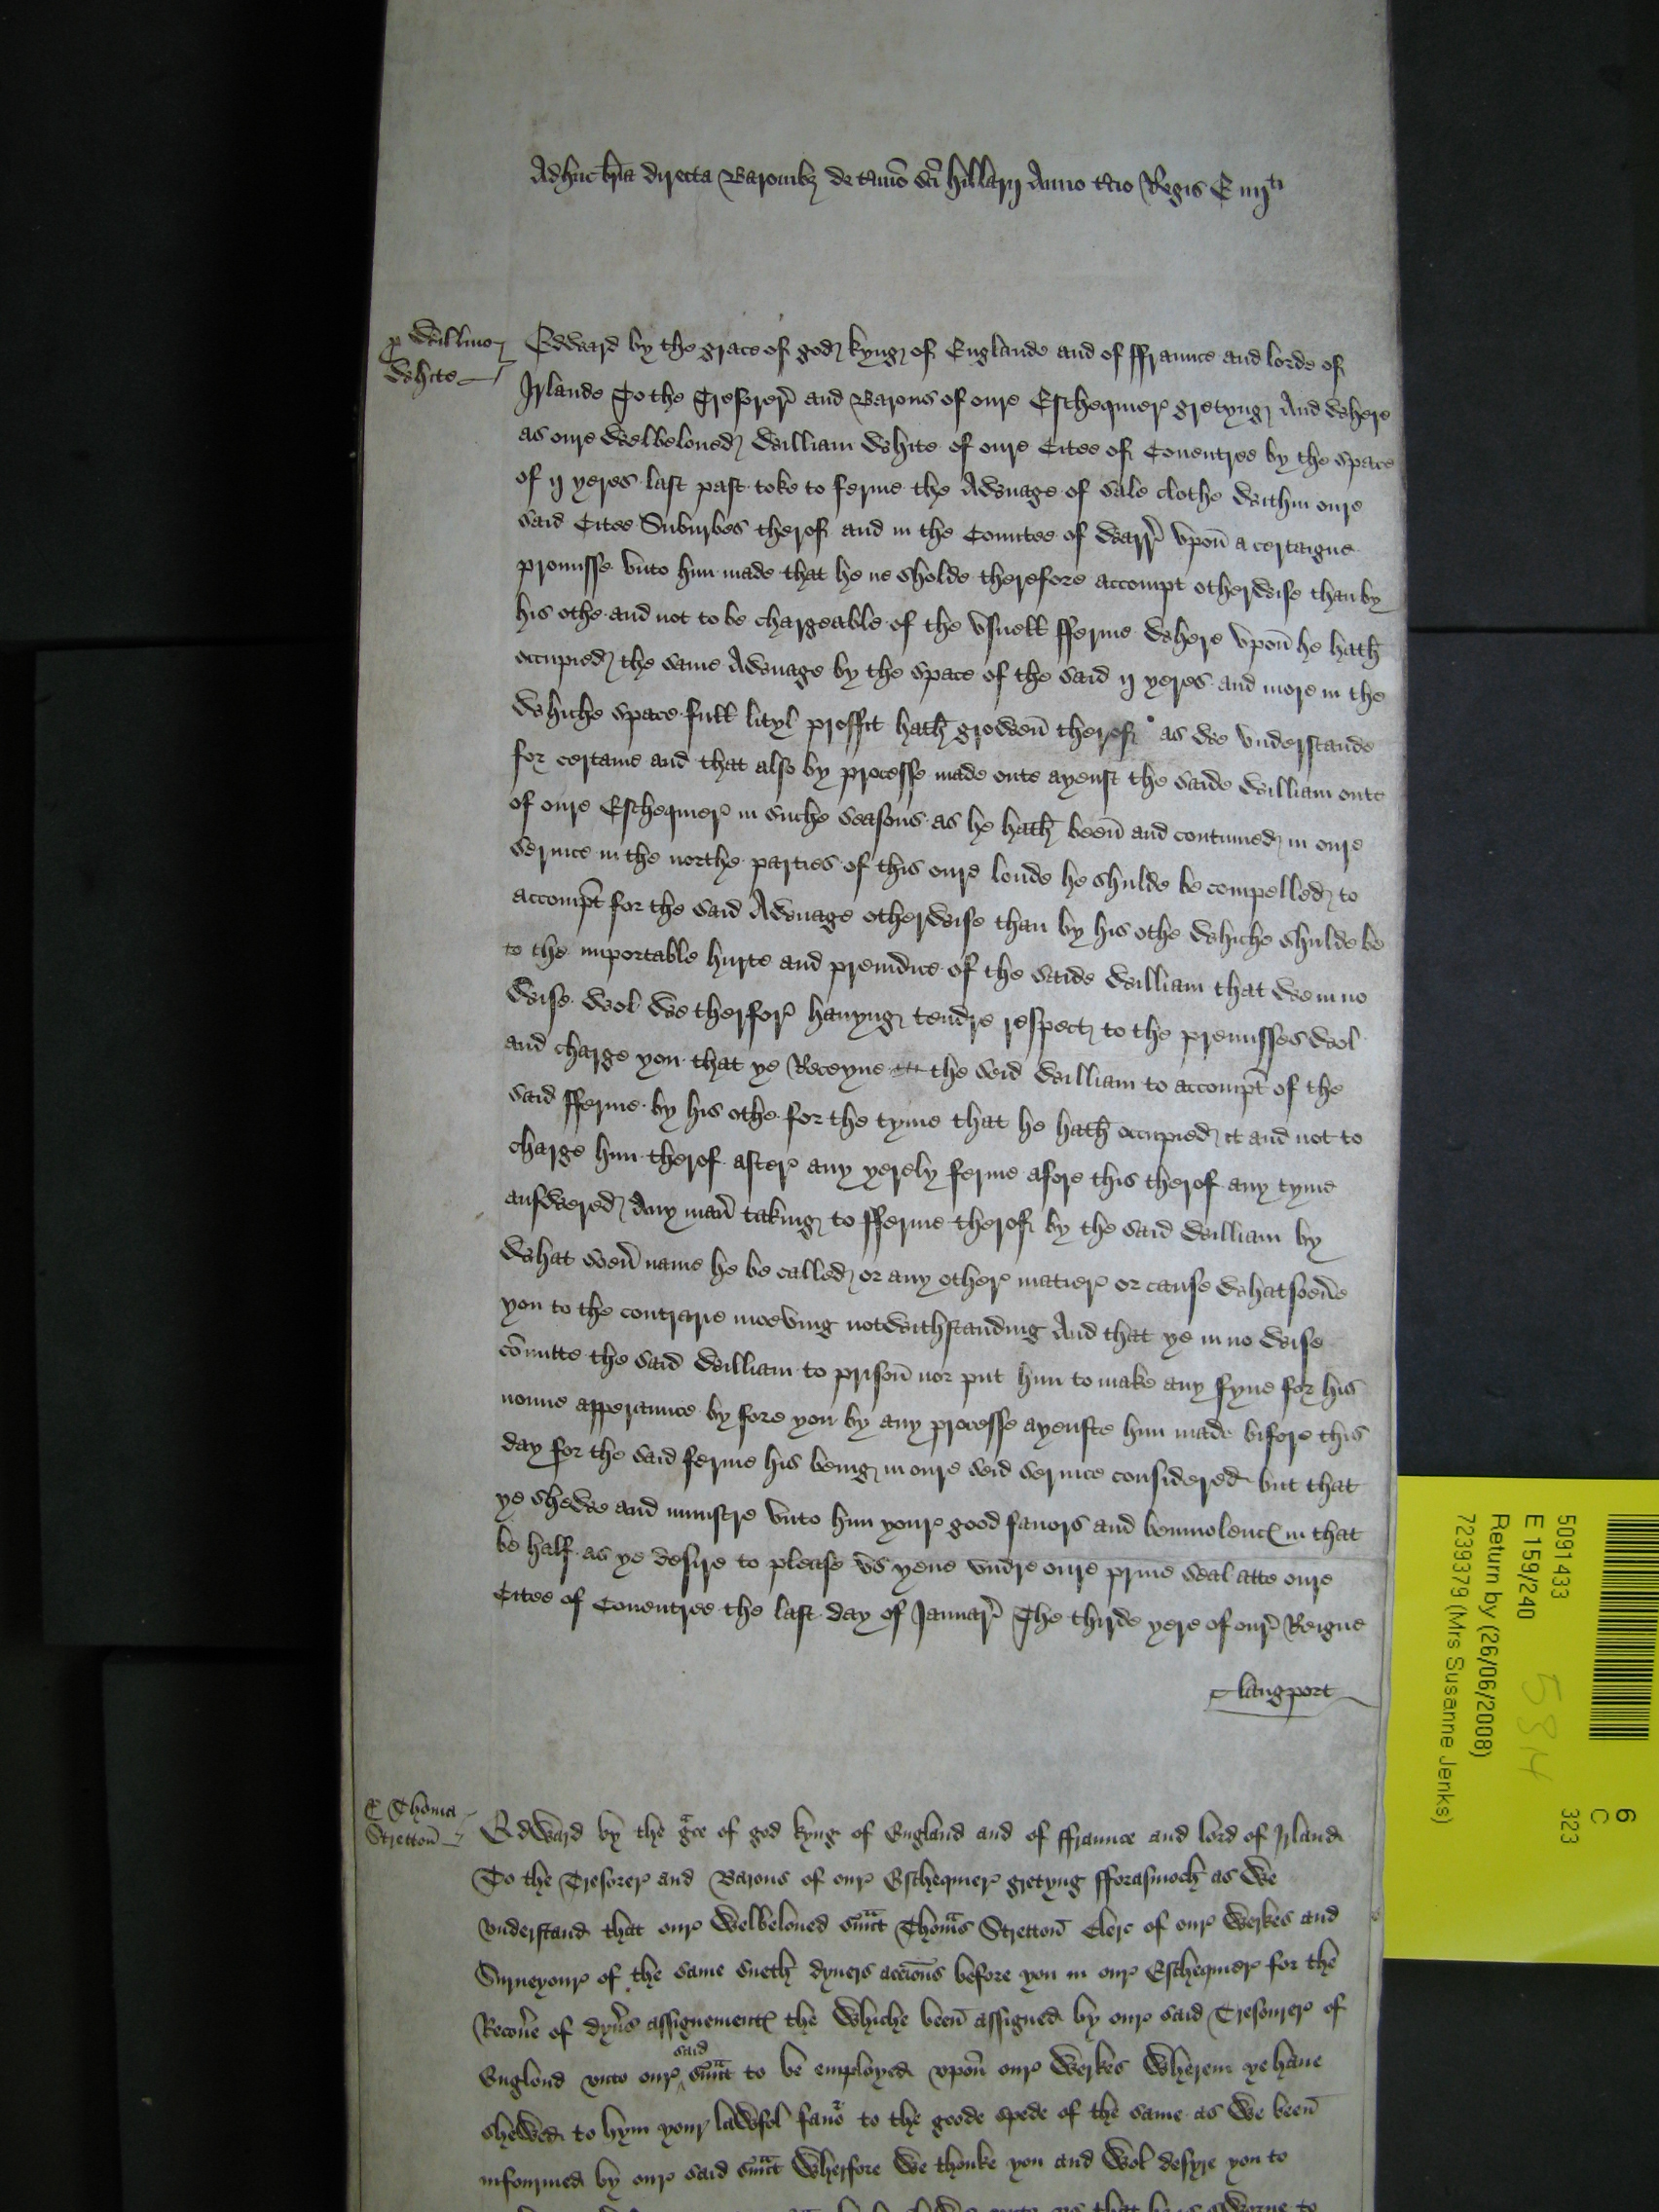 Adhuc br̄ia directa Baronibȝ de t̄mino sc̄i Hillarij Anno t̄cio Regis E iiij^ti
p Willmo
White
Edward by the grace of god kyng of Englande and of ffraunce and lorde of
Irlande To the Tresorer and Barons of oure Eschequier gretyng And where
as oure welbeloued William White of oure Citee of Couentree by the space
of ij yeres last past toke to ferme the Awnage of sale clothe within oure
said Citee Suburbes therof and in the Countee of Warr̄ vpon̄ a certaigne
promisse vnto him made that he ne sholde therefore accompt otherwise than by
his othe and not to be chargeable of the vsuell fferme where vpon̄ he hath
occupied the same Awnage by the space of the said ij yeres and more in the
whiche space full lityl proffit hath growen̄ therof as we vnderstande
for certaine and that also by processe made oute ayenst the saide William oute
of oure Eschequier in suche seasons as he hath been̄ and contynued in oure
seruice in the northe parties of this oure londe he shulde be compelled to
accompt for the said Awnage otherwise than by his othe whiche shulde be
to the importable hurte and preiudice of the saide William that we in no
wise wol we therfor hauyng tendre respect to the premisses wol
and charge you that ye Receyue the seid William to accompt of the
said fferme by his othe for the tyme that he hath occupied it and not to
charge him therof after any yerely ferme afore this therof any tyme
answered Any man̄ taking to fferme therof by the said William by
what soeū name he be called or any other matier or cause whatsoeūe
you to the contrarie moeving notwithstanding And that ye in no wise
com̄itte the said William to prison̄ nor put him to make any fyne for his
nonne apperaunce by fore you by any processe ayenste him made bifore this
day for the said ferme his being in oure seid seruice considered but that
ye shewe and ministre vnto him your good fauors and beniuolence in that
be half as ye desire to please vs yeue vndre oure priue seal atte oure
Citee of Couentree the last day of Januar̄ The thirde yere of our Reigne
Langport
p Thoma
Stretton̄
Edward by the g^ace of god kyng of England and of ffraunce and lord of Irland
To the Tresorer and Barons of our Eschequier gretyng fforasmoch as we
vnderstand that our welbeloued s̄uant Thomas Stretton̄ Clerc of our werkes and
Surueyour of the same sueth dyuers accions before you in our Eschequier for the
Recoūe of dyūs assignementes the whiche been̄ assigned by our said Tresourer of
Englond vnto our said s̄uant to be employed vpon̄ our werkes wherein ye haue
shewed to hym your lawfol fauo^r to the goode spede of the same as we been̄
infourmed by our said s̄uant wherfore we thonke you and wol desyre you to
5091433
E 159/240
Return by (26/06/2008)
7239379 (Mrs Susanne Jenks)
6
C
323